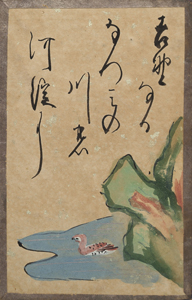 吉野なる
なつみの
川の
河淀に